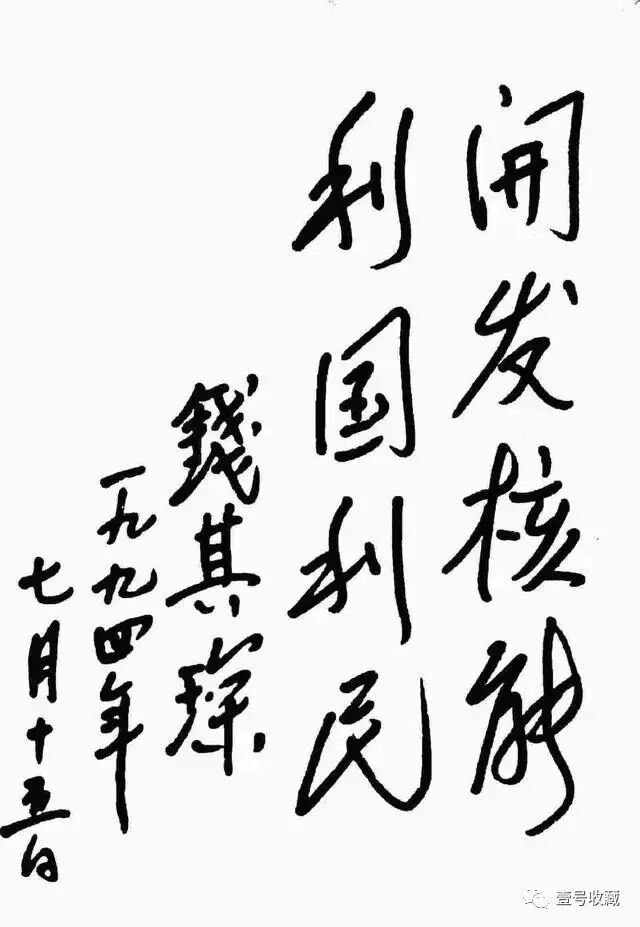 开发核能
利国利民
錢其琛
一九九四年
七月十五日
壹号收藏